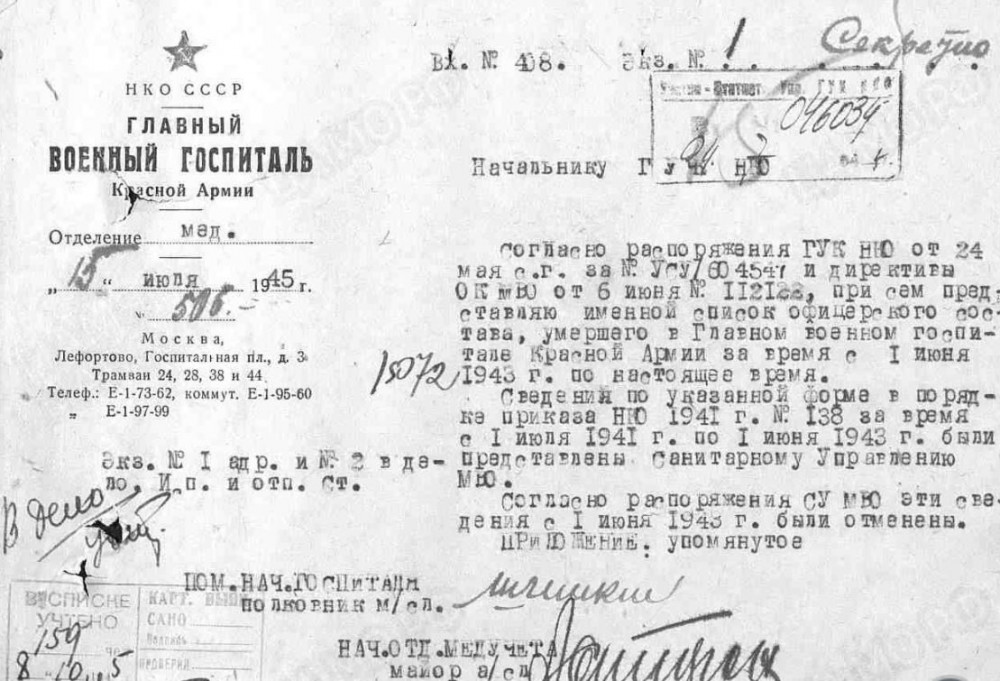 Вх. № 408. Экз. № 1
Секретно
НКО СССР
ГЛАВНЫЙ
ВОЕННЫЙ ГОСПИТАЛЬ
Красной Армии
Отделение мед.
„15“ июля 1945 г.
№ 506.
Москва,
Лефортово, Госпитальная пл., д. 3
Трамваи 24, 28, 38 и 44
Телеф.: Е-1-73-62, коммут. Е-1-95-60
„ Е-1-97-99
Экз. № I адр. и № 2 в де-
ло. И.п. и отп. Ст.
В дело
046034
Начальнику ГУК НКО
согласно распоряжения ГУК НКО от 24
мая с.г. за № УСУ/604547 и директивы
ОК МВО от 6 июня № 112122, при сем пред-
ставляю именной список офицерского сос-
тава, умершего в Главном военном госпи-
тале Красной Армии за время с I июня
1943 г. по настоящее время.
15072
Сведения по указанной форме в поряд-
ке приказа НКО 1941 г. № 138 за время
с I июля 1941 г. по I июня 1943 г. были
представлены Санитарному Управлению
МВО.
Согласно распоряжения СУ МВО эти све-
дения с I июня 1943 г. были отменены.
ПРИЛОЖЕНИЕ: упомянутое
ПОМ.НАЧ.ГОСПИТАЛЯ
полковник м/сл.
НАЧ.ОТД.МЕДУЧЕТА
майор а/сл
В СПИСКЕ
УЧТЕНО
159
КАРТ.
САНО
Подпись
ПРОВЕРИЛ